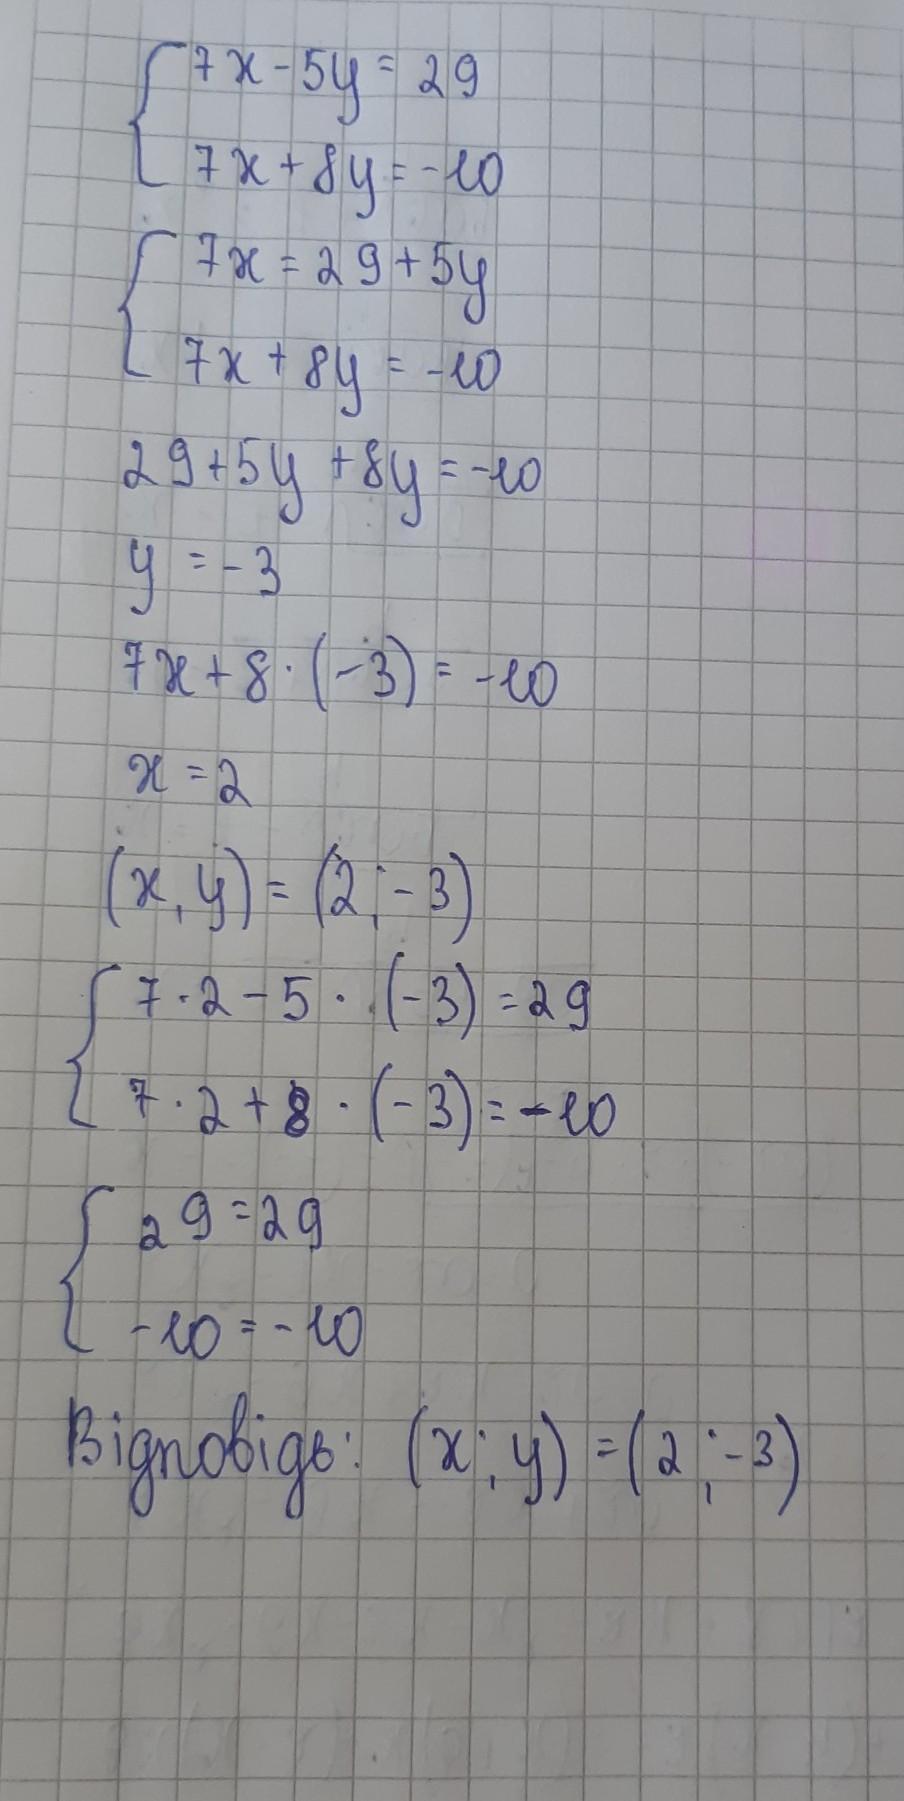 7x - 5y = 29
7x + 8y = -10
7x = 29 + 5y
7x + 8y = -10
29 + 5y + 8y = -10
y = -3
7x + 8 · (-3) = -10
x = 2
(x, y) = (2; -3)
7 · 2 - 5 · (-3) = 29
7 · 2 + 8 · (-3) = -10
29 = 29
-10 = -10
Відповідь: (x; y) = (2; -3)